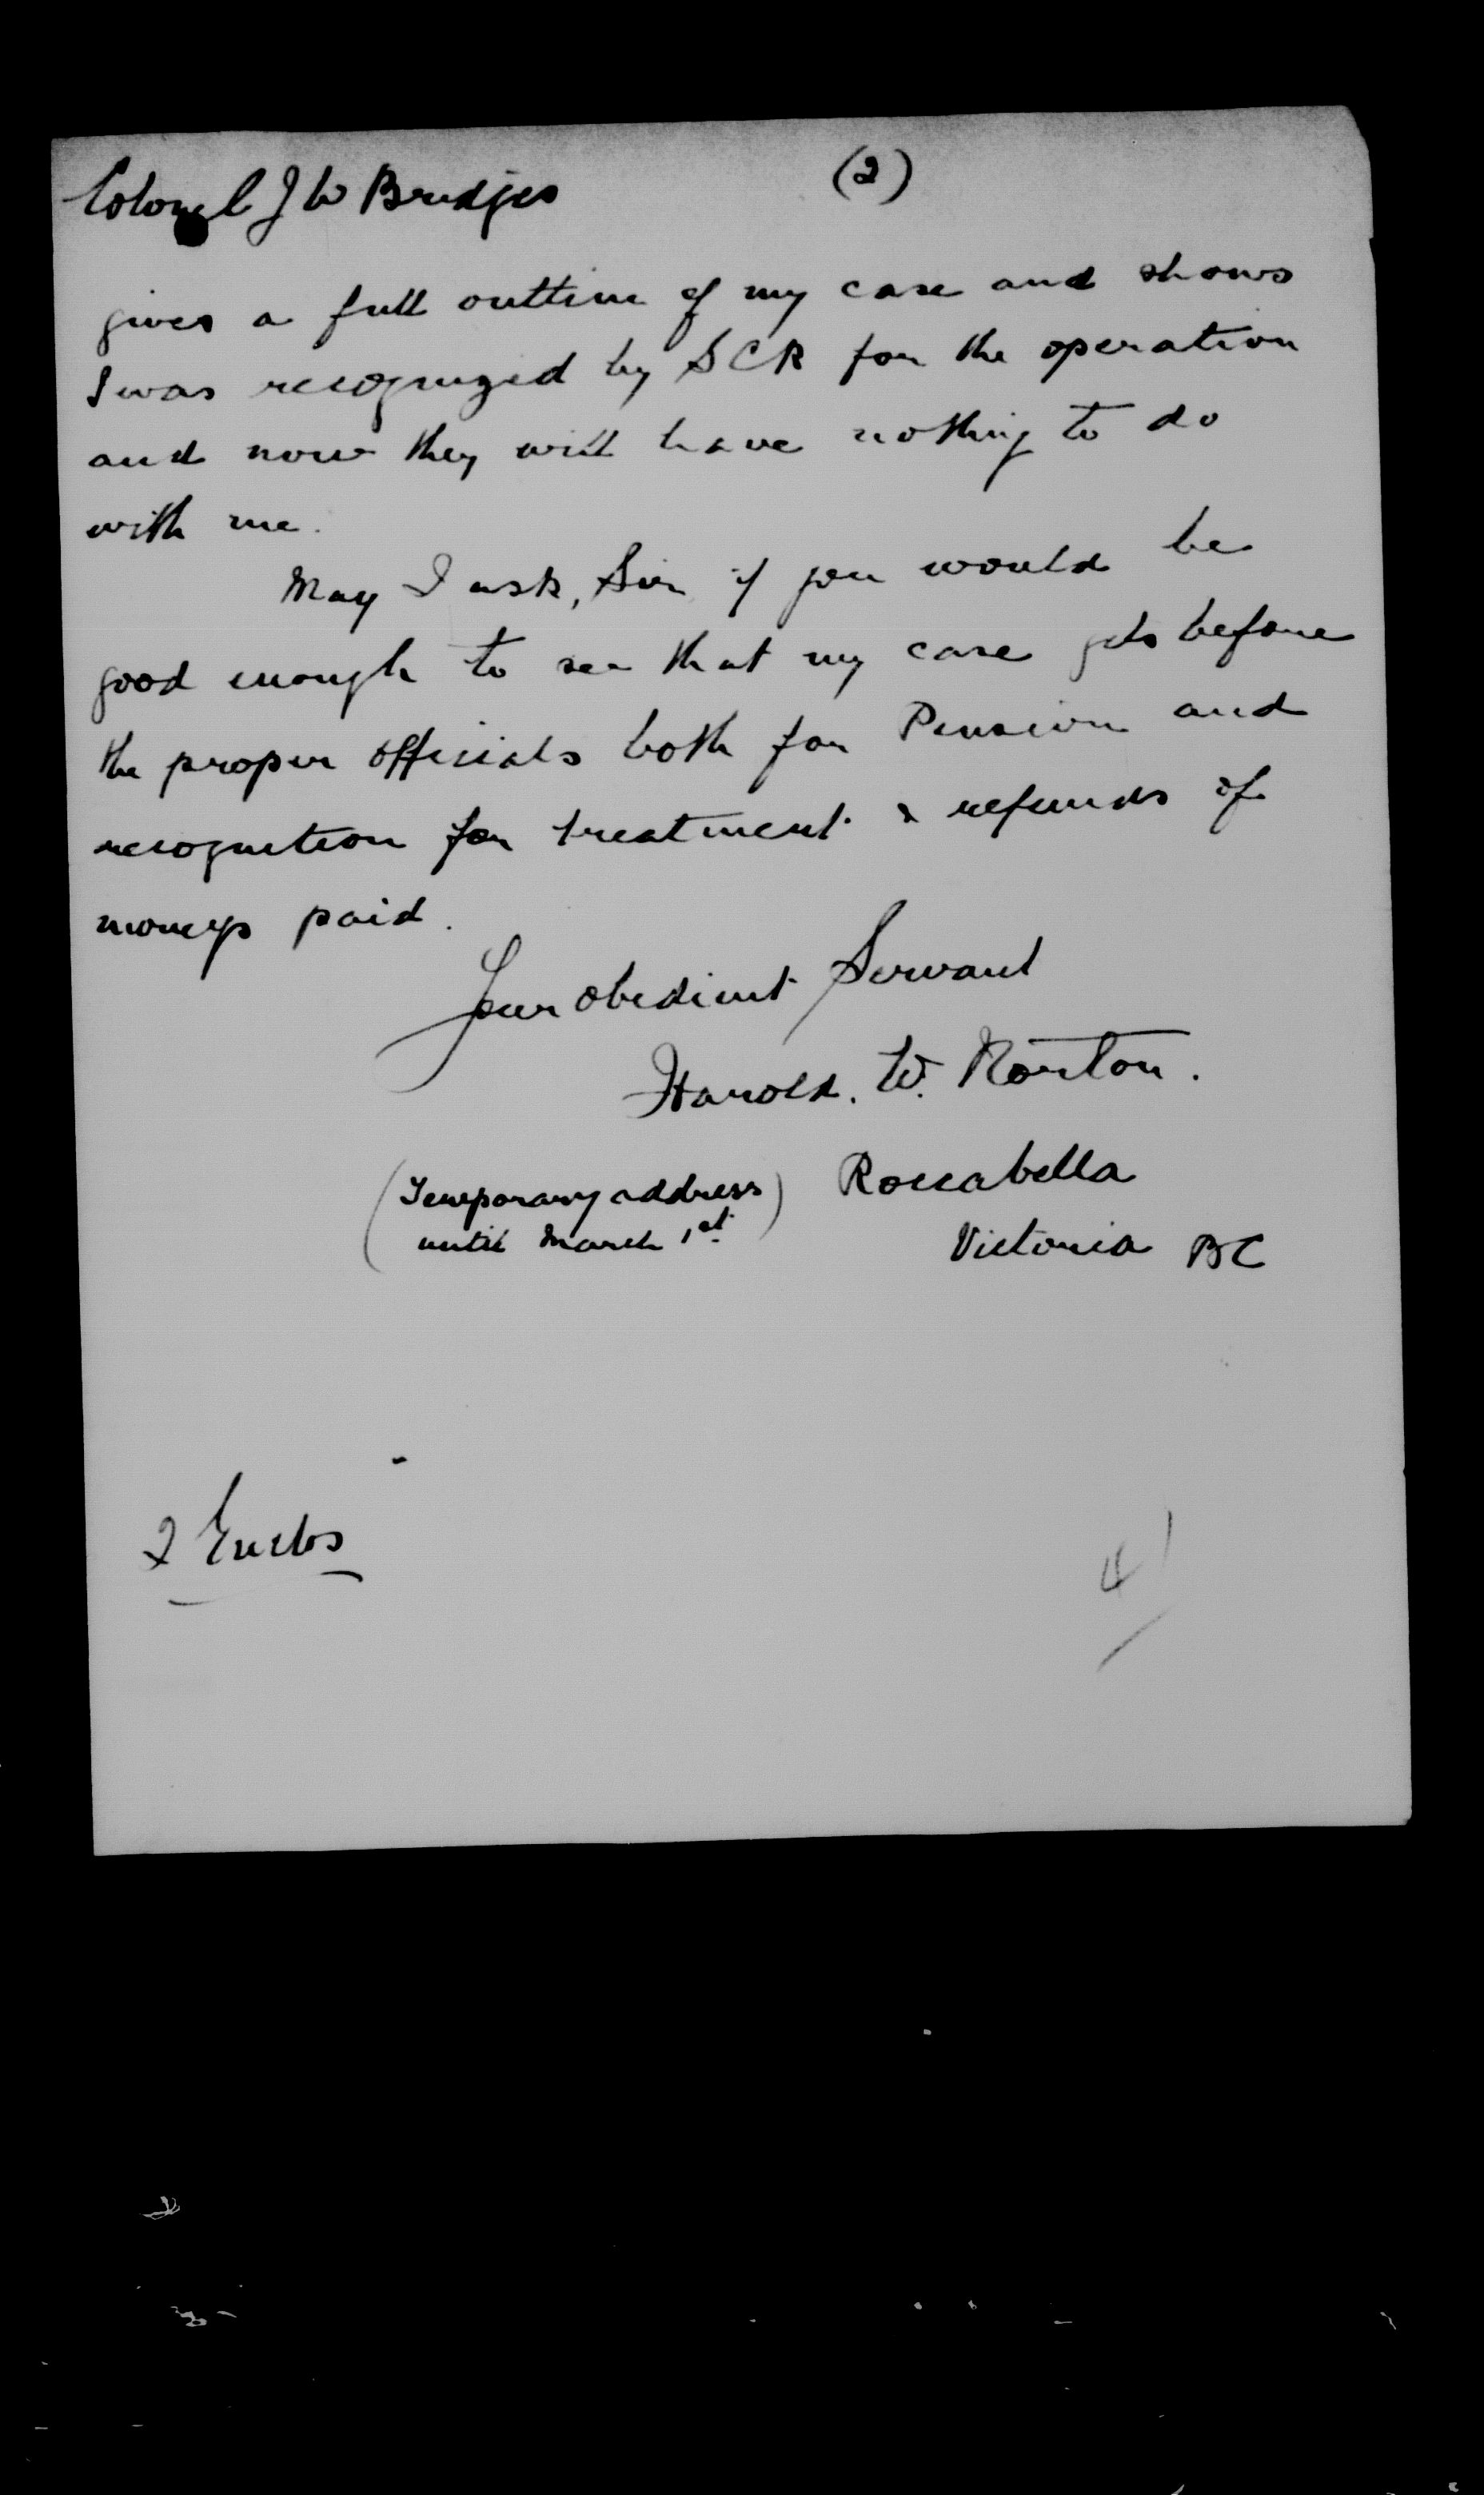 Colonel J W Bridges
(2)
gives a full outline of my case and shows
I was recognized by SCR for the operation
and now they will have nothing to do
with me.
May I ask, Sir if you would be
good enough to see that my case gets before
the proper officials both for Pension and
recognition for treatment & refunds of
moneys paid.
Your obedient Servant
Harold. W. Norton.
(Temporary address) Roccabella
until March 1st.
Victoria BC
2 Encls